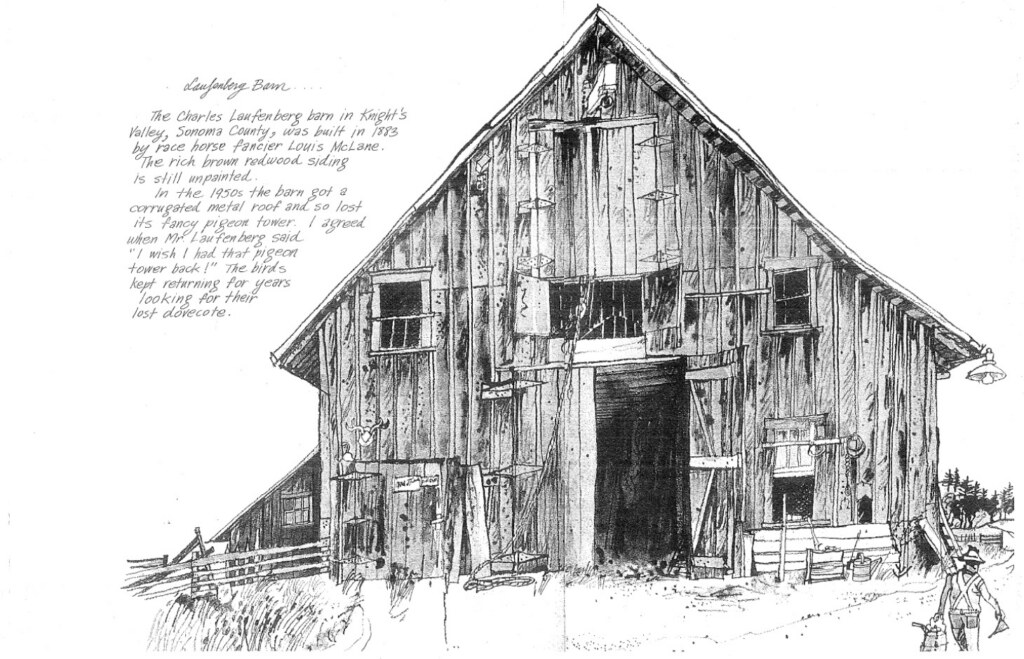 Laufenberg Barn.....
The Charles Laufenberg barn in Knight's
Valley, Sonoma County, was built in 1883
by race horse fancier Louis McLane.
The rich brown redwood siding
is still unpainted.
In the 1950s the barn got a
corrugated metal roof and so lost
its fancy pigeon tower. I agreed
when Mr. Laufenberg said
"I wish I had that pigeon
tower back!" The birds
kept returning for years
looking for their
lost dovecote.